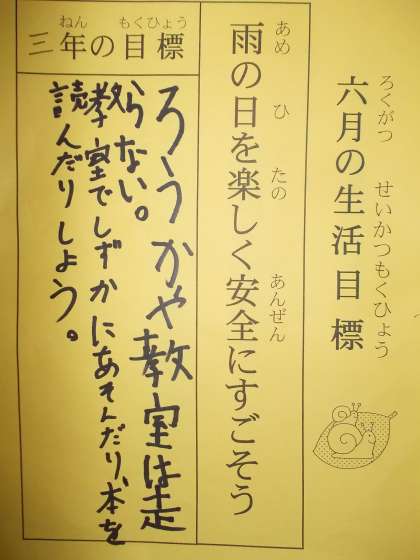 ろくがつ せいかつもくひょう
六月の生活目標
あめ ひ たの あんぜん
雨の日を楽しく安全にすごそう
ねん もくひょう
三年の目標
ろうかや教室は走
らない。
教室でしずかにあそんだり、本を
読んだりしよう。